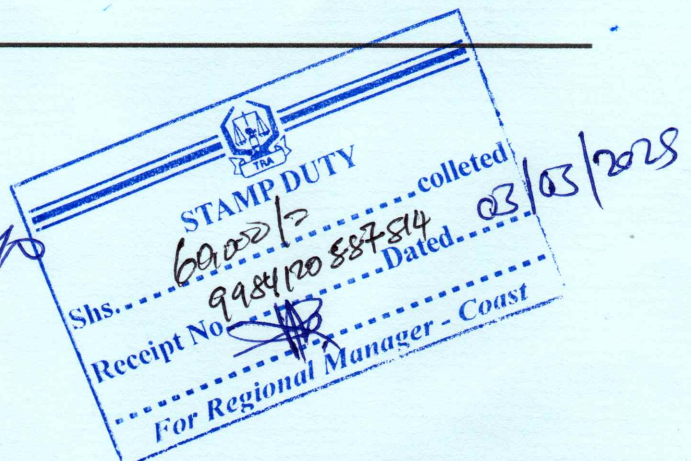 TRA
STAMP DUTY
Shs. 60,000/= colleted
Receipt No. 9984120887814 Dated 03/03/2025
For Regional Manager - Coast